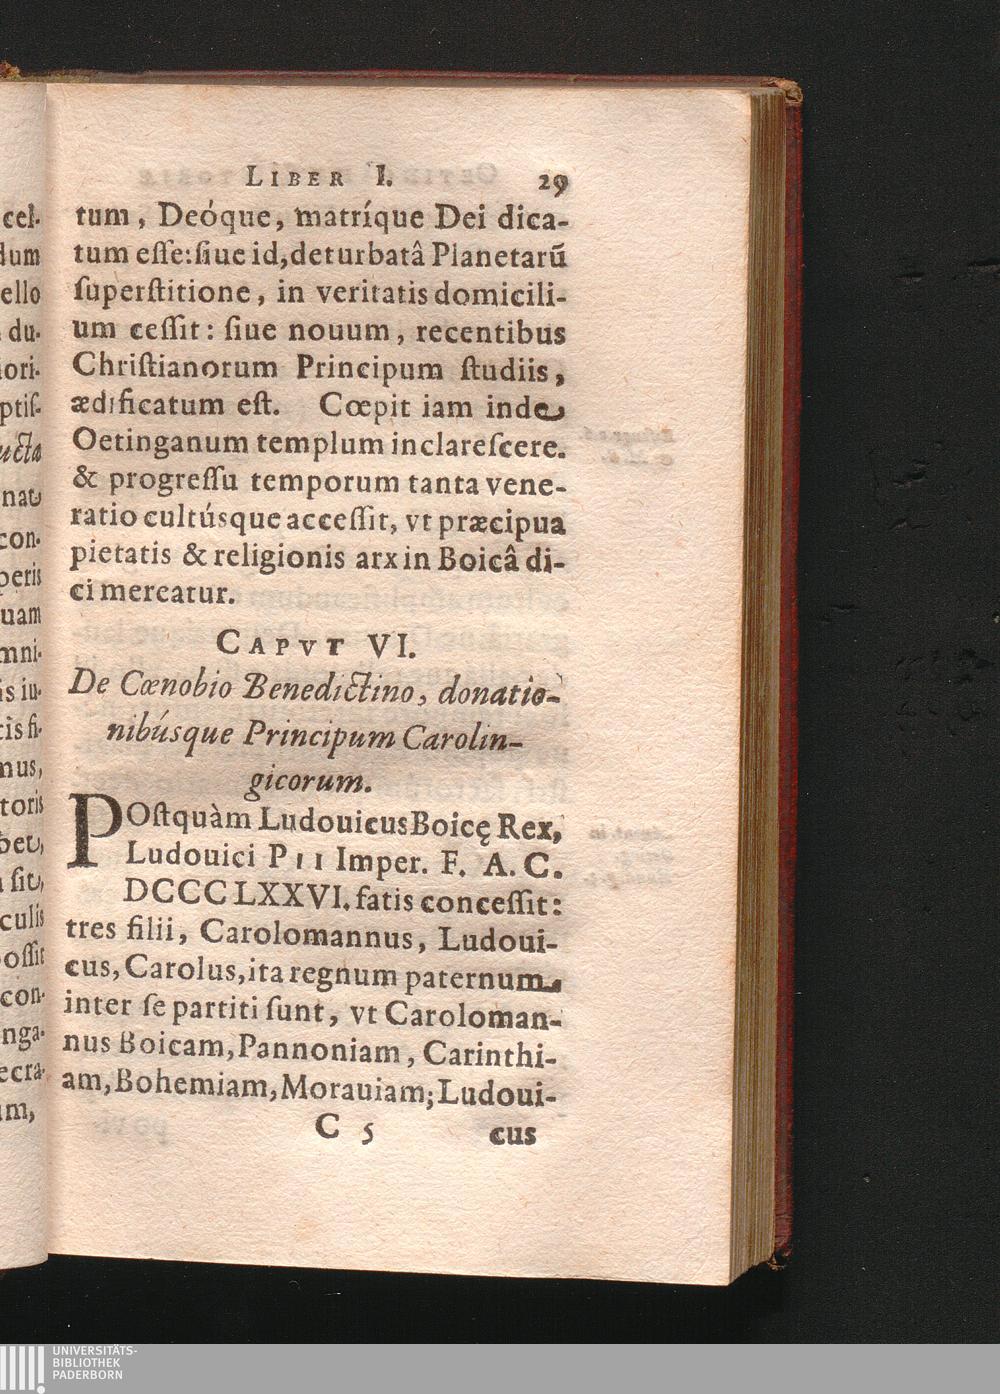 cel-
dum
ello
du-
iori-
ptiſ-
ucta
nat
con-
peris
uam
mni-
is iu-
tis fi-
nus,
toris
bet,
ſit,
culis
oſſit
con-
nga-
ecra-
um,
LIBER I. 29
tum, Deóque, matríque Dei dica-
tum eſſe: ſiue id, deturbatâ Planetarũ
ſuperſtitione, in veritatis domicili-
um ceſſit: ſiue nouum, recentibus
Chriſtianorum Principum ſtudiis,
ædificatum eſt. Cœpit iam inde
Oetinganum templum inclareſcere.
& progreſſu temporum tanta vene-
ratio cultúsque acceſſit, vt præcipua
pietatis & religionis arx in Boicâ di-
ci mereatur.
CAPVT VI.
De Cœnobio Benedictino, donatio-
nibúsque Principum Carolin-
gicorum.
POſtquàm Ludouicus Boicę Rex,
Ludouici PII Imper. F. A. C.
DCCCLXXVI. fatis conceſſit:
tres filii, Carolomannus, Ludoui-
cus, Carolus, ita regnum paternum
inter ſe partiti ſunt, vt Caroloman-
nus Boicam, Pannoniam, Carinthi-
am, Bohemiam, Morauiam; Ludoui-
C 5 cus
UNIVERSITÄTS-
BIBLIOTHEK
PADERBORN